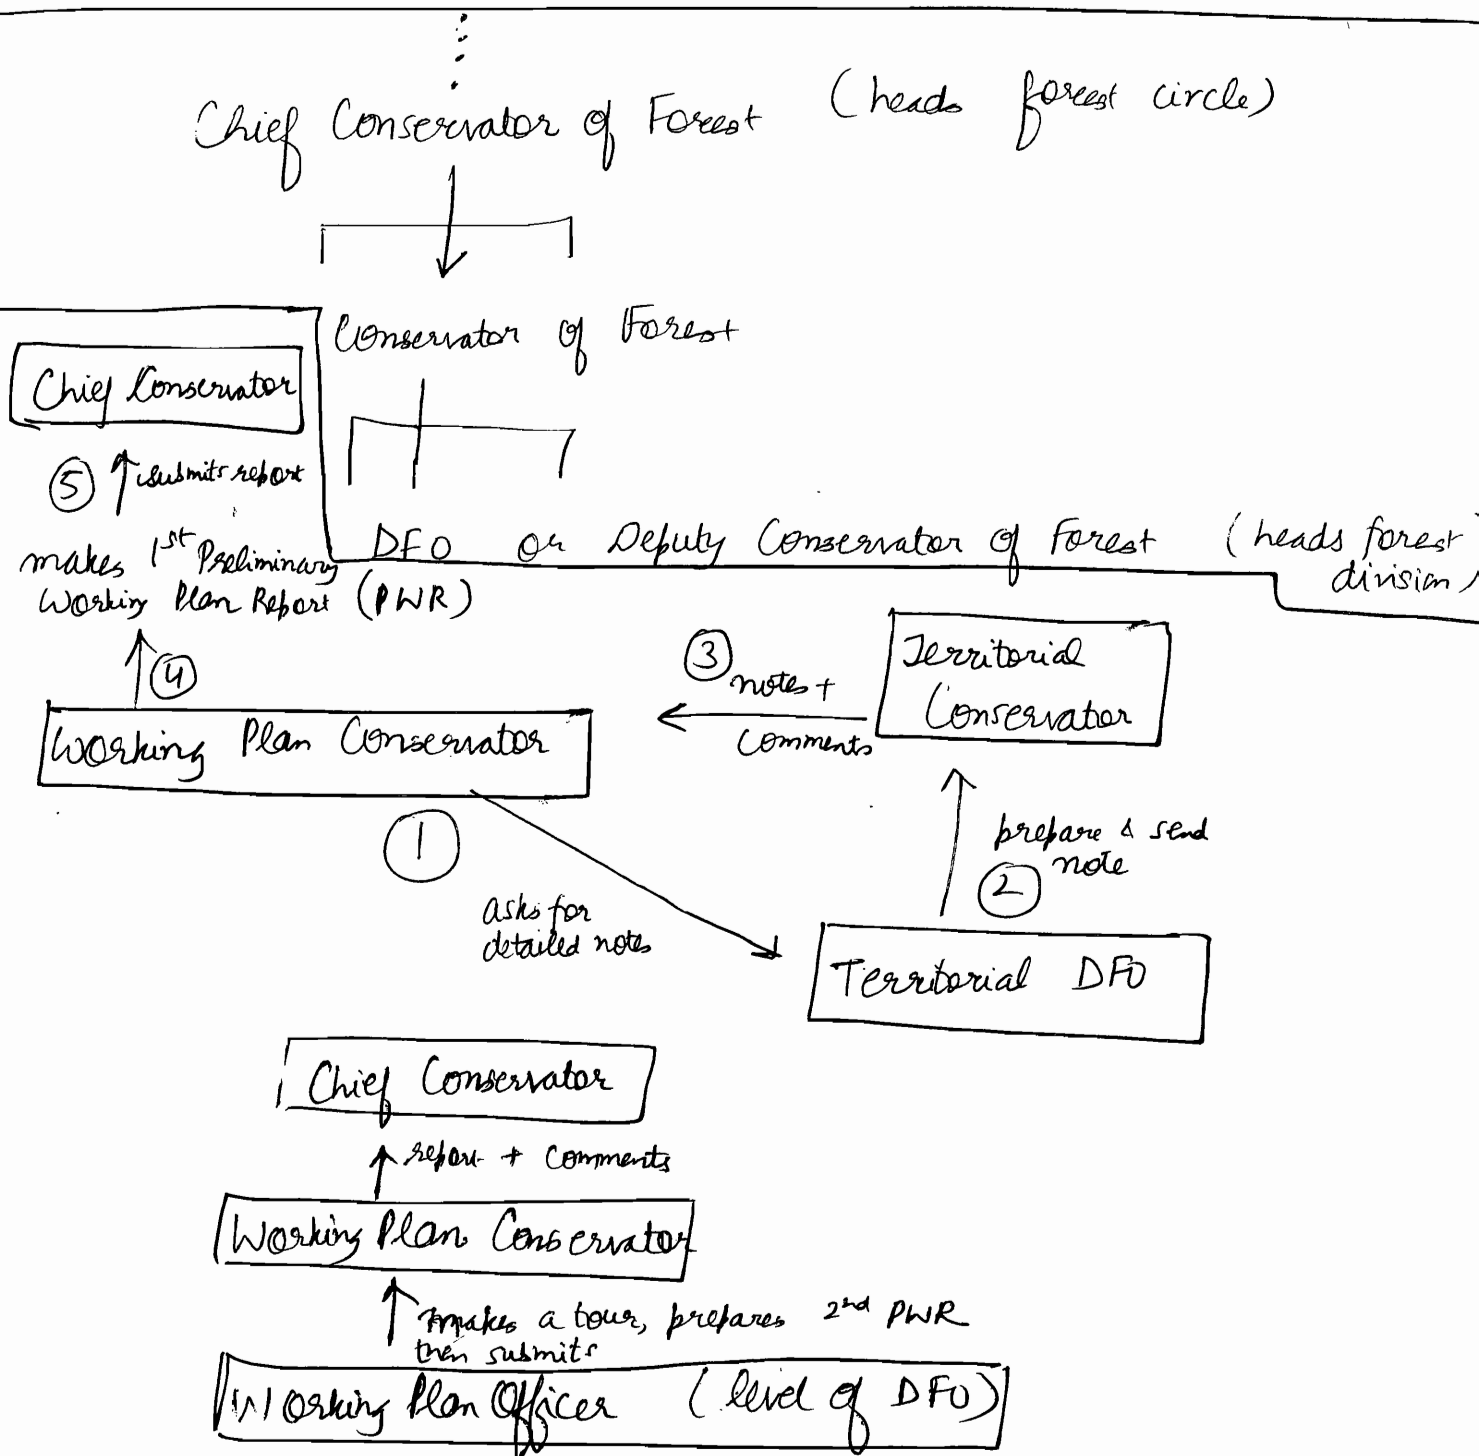 Chief Conservator of Forest (heads forest circle)
Conservator of Forest
Chief Conservator
⑤ ↑ submits report
DFO or Deputy Conservator of Forest (heads forest
division)
makes 1st Preliminary
Working Plan Report (PWR)
↑ ④
Working Plan Conservator
③
notes +
comments
Territorial
Conservator
①
asks for
detailed notes
prepare & send
note
②
Territorial DFO
Chief Conservator
↑ report + comments
Working Plan Conservator
↑ makes a tour, prepares 2nd PWR
then submits
Working Plan Officer (level of DFO)